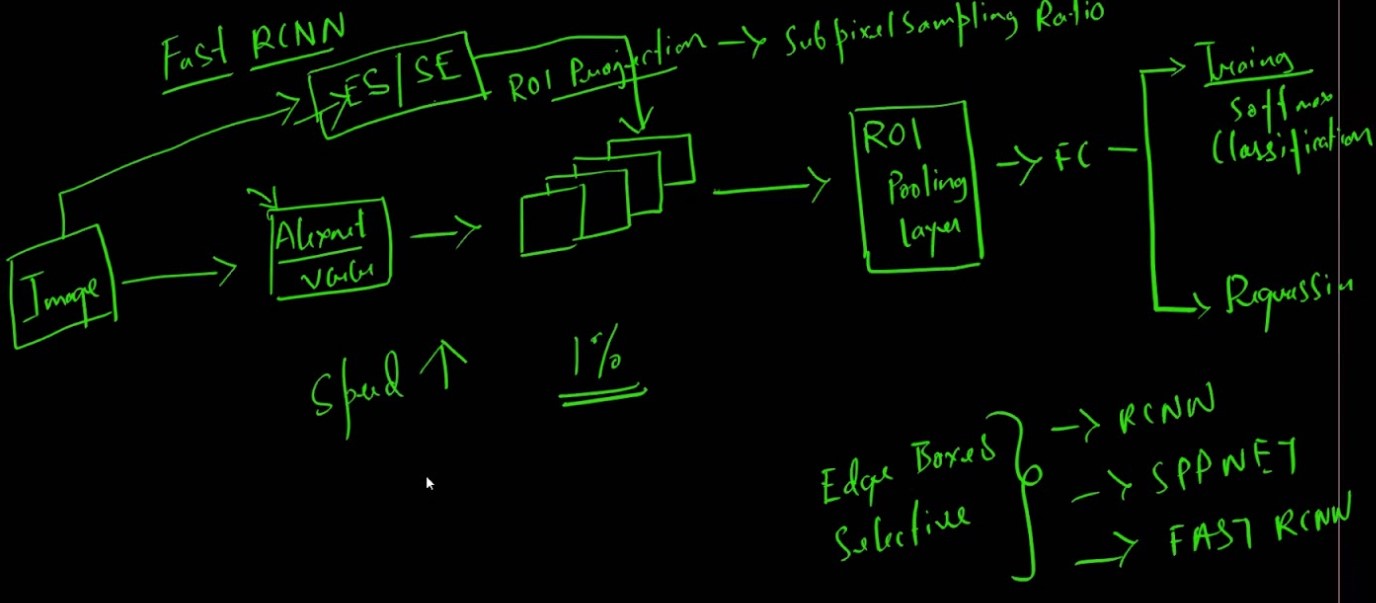 Fast RCNN
ES | SE
ROI Projection → Subpixel Sampling Ratio
Image
Alexnet
VGG
ROI
Pooling
layer
→ FC
Softmax
Classification
Regression
Speed ↑
1%
Edge Boxes
Selective
→ RCNN
→ SPPNET
→ FAST RCNN